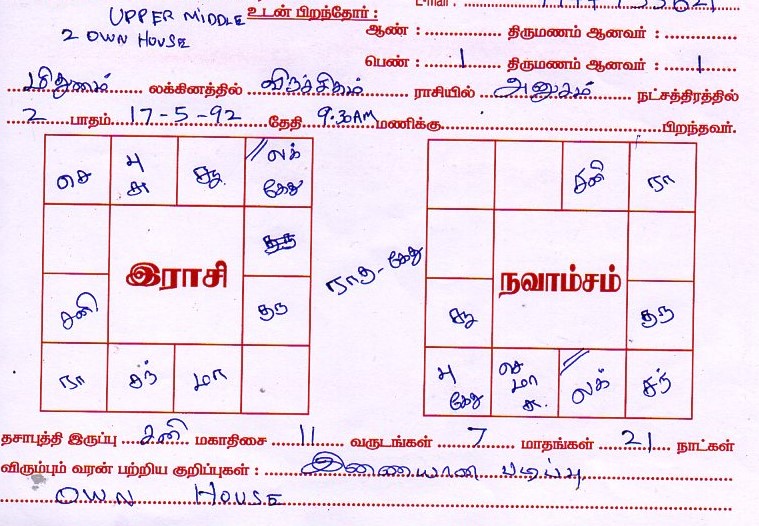 UPPER MIDDLE உடன் பிறந்தோர் :
2 OWN HOUSE
ஆண் : திருமணம் ஆனவர் :
பெண் : 1 திருமணம் ஆனவர் : 1
மிதுனம் லக்கினத்தில் விருச்சிகம் ராசியில் அனுசம் நட்சத்திரத்தில்
2 பாதம் 17-5-92 தேதி 9.30AM மணிக்கு பிறந்தவர்.
செ பு சு சூ லக் கேது
சனி குரு
இராசி
ரா சந் மா
ராகு-கேது
சனி ரா
சூ குரு
நவாம்சம்
பு கேது செ மா சு லக் சந்
தசாபுத்தி இருப்பு சனி மகாதிசை 11 வருடங்கள் 7 மாதங்கள் 21 நாட்கள்
விரும்பும் வரன் பற்றிய குறிப்புகள் : இணையான படிப்பு
OWN HOUSE